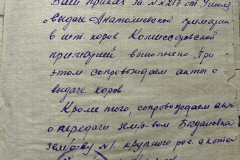 Ваш приказ за № 217 от 9 июля
выдаче Анатольевской гимназии
6 шт коров Комиссаровской
примарией выполнено. При
этом сопровождаем акты о
выдаче коров
Кроме того, сопровождаем акт
о передаче Богдановка
№1 крупного рог.